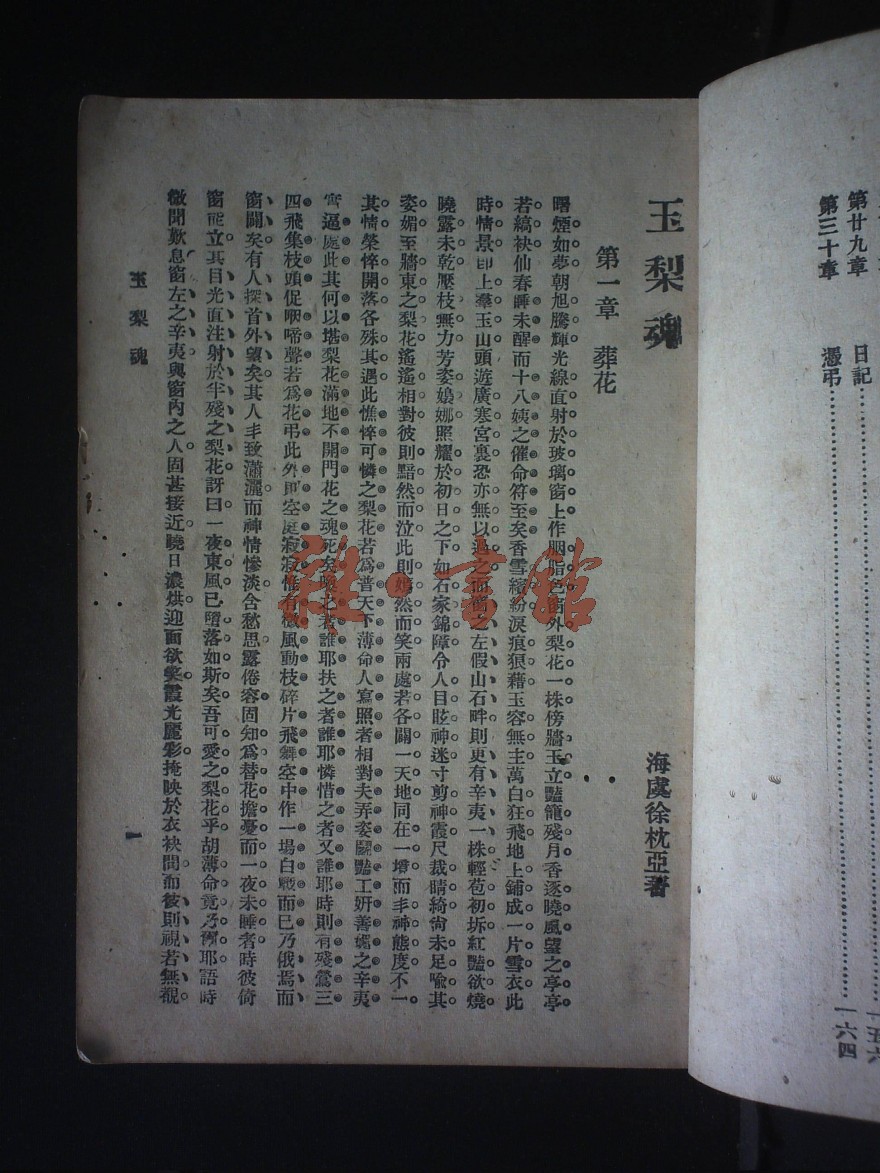 第廿九章 日記……一五六
第三十章 憑弔……一六四
玉梨魂
海虞徐枕亞著
第一章 葬花
曙煙如夢朝旭騰輝光線直射於玻璃窗上作胭脂色窗外梨花一株傍牆玉立豔籠殘月香逐曉風望之亭亭
若縞袂仙春睡未醒而十八姨之催命符至矣香雪繽紛淚痕狼藉玉容無主萬白狂飛地上鋪成一片雪衣此
時情景卽上羣玉山頭遊廣寒宮裏恐亦無以過之而窗之左假山石畔則更有辛夷一株輕苞初坼紅豔欲燒
曉露未乾壓枝無力芳姿嬝娜照耀於初日之下如石家錦障令人目眩神迷寸剪神霞尺裁晴綺尙未足喩其
姿媚至牆東之梨花遙遙相對彼則黯然而泣此則嫣然而笑兩處若各闢一天地同在一境而丰神態度不一
其情榮悴開落各殊其遇此憔悴可憐之梨花若爲普天下薄命人寫照者相對夫弄姿鬭豔工妍善媚之辛夷
實逼處此其何以堪梨花滿地不開門花之魂死矣喚之者誰耶扶之者誰耶憐惜之者又誰耶時則有殘鶯三
四飛集枝頭促咽啼聲若爲花弔此外卽空庭寂寂惟有微風動枝碎片飛舞空中作一場白戰而已乃俄焉而
窗闢矣有人探首外望矣其人丰致瀟灑而神情慘淡含愁思露倦容固知爲替花擔憂而一夜未睡者時彼倚
窗而立其目光直注射於半殘之梨花訝曰一夜東風已墮落如斯矣吾可愛之梨花乎胡薄命竟乃爾耶語時
微聞歎息窗左之辛夷與窗內之人固甚接近曉日濃烘迎面欲笑霞光麗彩掩映於衣袂間而彼則視若無覩
玉梨魂
一
雜·書館